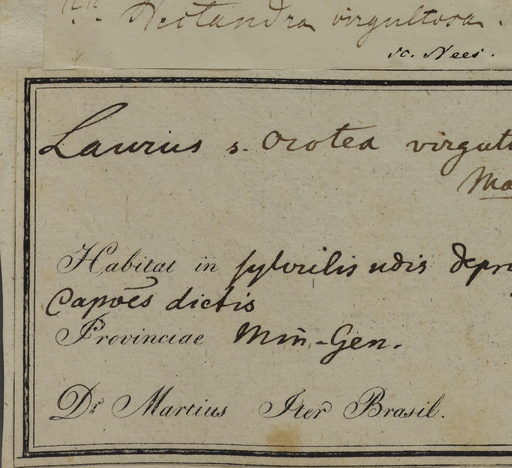 Nectandra virgultosa.
sc. Nees.
Laurus s. Ocotea virgul
Ma
Habitat in sylvulis udis depr
Capoës dictis
Provinciae Min-Gen.
Dr Martius Iter Brasil.